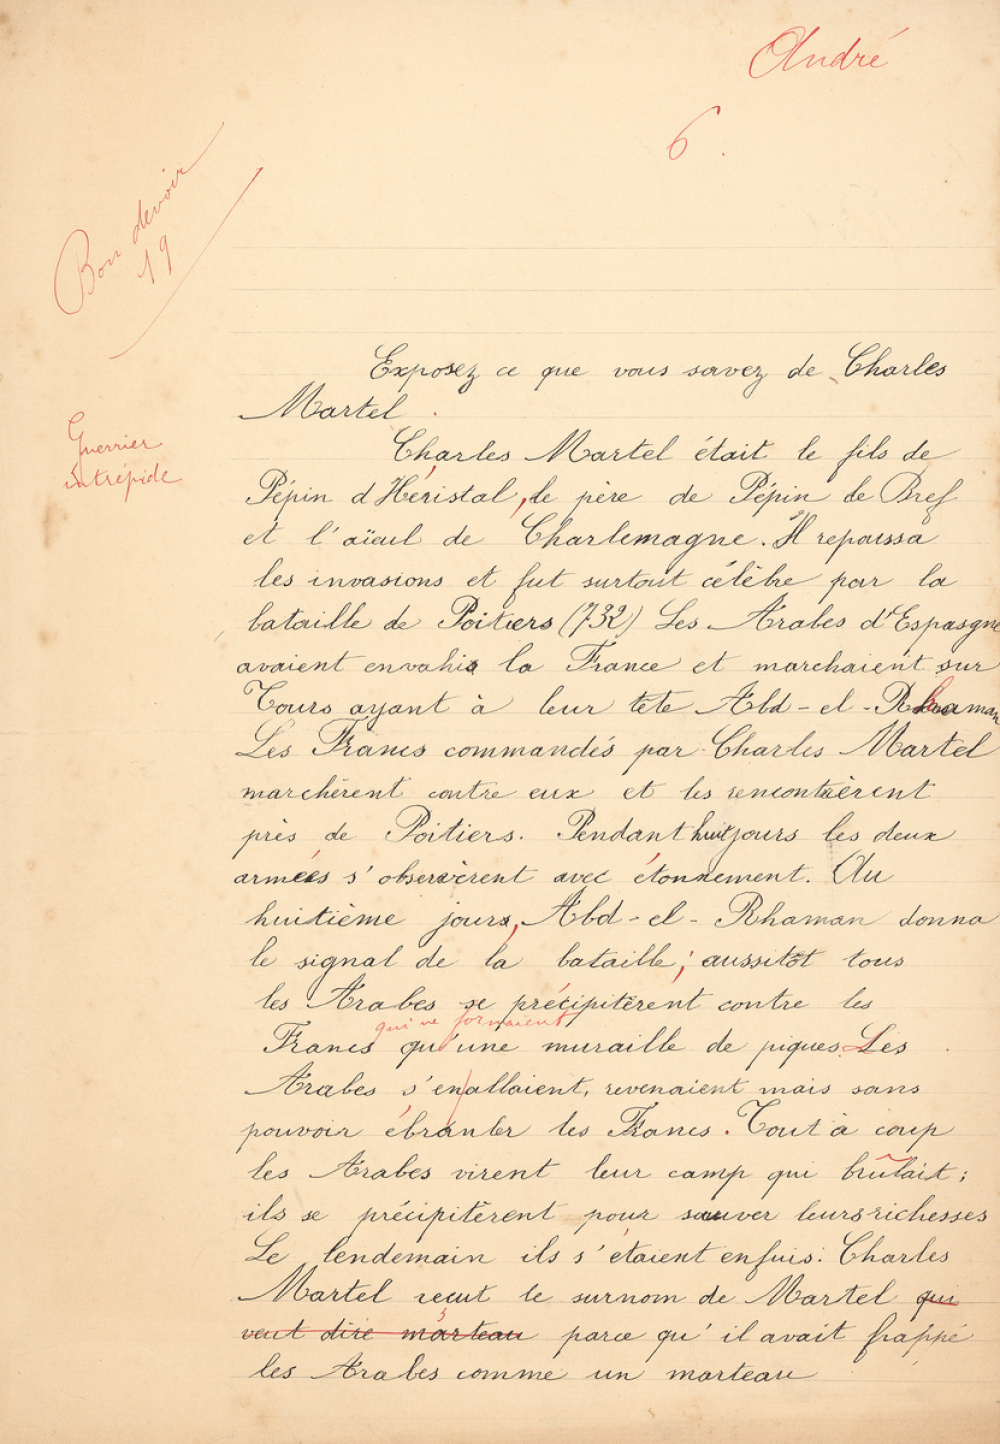 André
6.
Bon devoir
19
Exposez ce que vous savez de Charles
Martel.
Guerrier
intrépide
Charles Martel était le fils de
Pépin d'Héristal, le père de Pépin le Bref
et l'aïeul de Charlemagne. Il repoussa
les invasions et fut surtout célèbre par la
bataille de Poitiers (732) Les Arabes d'Espagne
avaient envahis la France et marchaient sur
Tours ayant à leur tête Abd-el-Rhaman
Les Francs commandés par Charles Martel
marchèrent contre eux et les rencontrèrent
près de Poitiers. Pendant huit jours les deux
armées s'observèrent avec étonnement. Au
huitième jours, Abd-el-Rhaman donna
le signal de la bataille; aussitôt tous
les Arabes se précipitèrent contre les
qui ne formaient
Francs qu'une muraille de piques. Les
Arabes s'en allaient, revenaient mais sans
pouvoir ébranler les Francs. Tout à coup
les Arabes virent leur camp qui brûlait;
ils se précipitèrent pour sauver leurs richesses
Le lendemain ils s'étaient enfuis. Charles
Martel reçut le surnom de Martel qui
veut dire marteau parce qu'il avait frappé
les Arabes comme un marteau